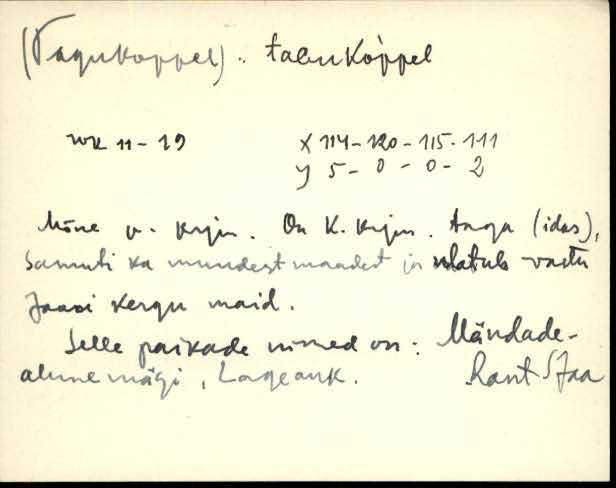 (Vagukoppel). taluKoppel
WK 11-19 X 114-120-115-111
y 5-0-0-2
Mõne v. kirjn. On K. kirjn. taga (idas),
samuti ka mundest maadest ja ulatub vastu
Jaani Kergu maid.
Selle paikade nimed on: Mändade-
alune mägi, Lageauk. Rant SJaa